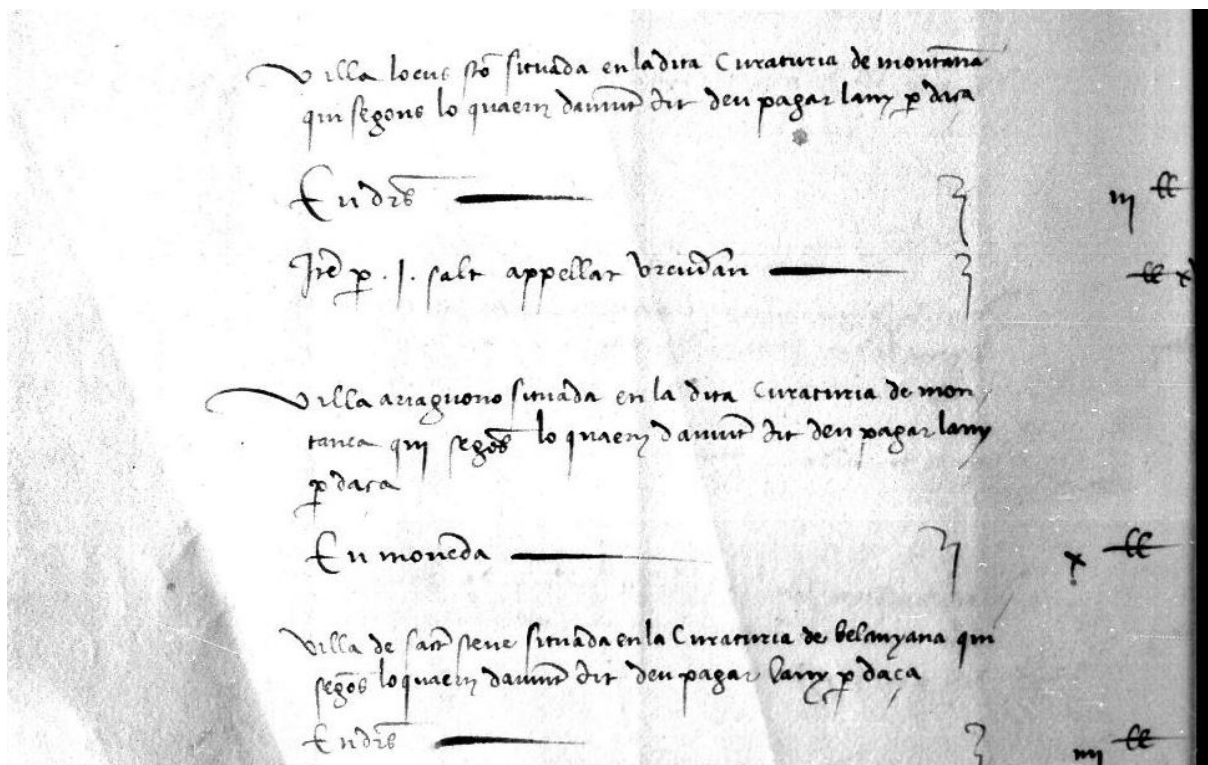 Villa locus sto situada en la dita Curaturia de montana
qui segons lo quaern damunt dit deu pagar lany p daça
En drs iij ll
Ite p .j. salt appellat ll
Villa situada en la dita Curaturia de mon
tanea qui segos lo quaern damunt dit deu pagar lany
p daça
En moneda x ll
Villa de sact steve situada en la Curaturia de belanyana qui
segos lo quaern damunt dit deu pagar lany p daça
En drs iiij ll